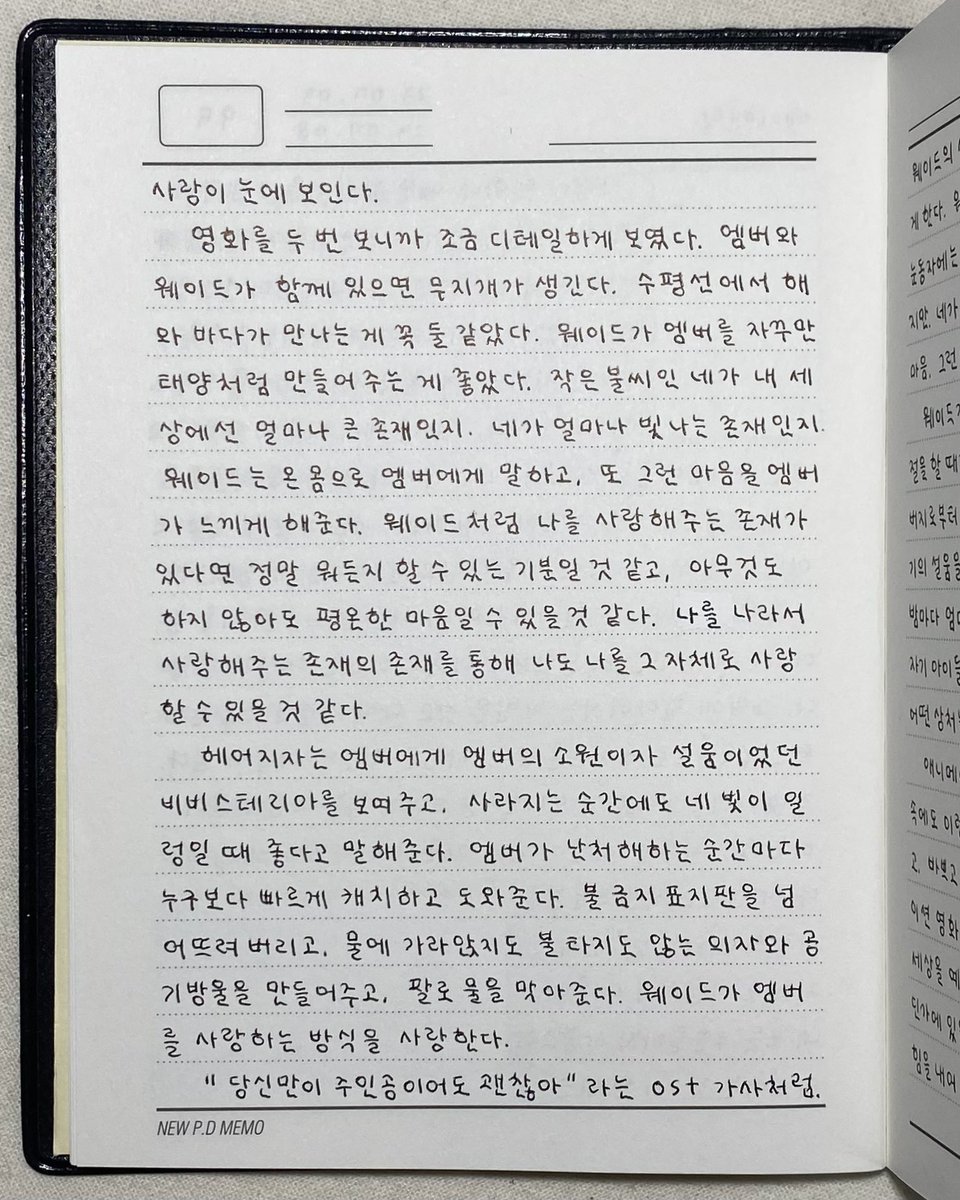 사랑이 눈에 보인다.
영화를 두 번 보니까 조금 디테일하게 보였다. 엠버와
웨이드가 함께 있으면 무지개가 생긴다. 수평선에서 해
와 바다가 만나는 게 꼭 둘 같았다. 웨이드가 엠버를 자꾸만
태양처럼 만들어 주는 게 좋았다. 작은 불씨인 네가 내 세
상에선 얼마나 큰 존재인지. 네가 얼마나 빛나는 존재인지.
웨이드는 온 몸으로 엠버에게 말하고, 또 그런 마음을 엠버
가 느끼게 해준다. 웨이드처럼 나를 사랑해주는 존재가
있다면 정말 뭐든지 할 수 있는 기분일 것 같고, 아무것도
하지 않아도 평온한 마음일 수 있을것 같다. 나를 나라서
사랑해주는 존재의 존재를 통해 나도 나를 그 자체로 사랑
할 수 있을 것 같다.
헤어지자는 엠버에게 엠버의 소원이자 설움이었던
비비스테리아를 보여주고, 사라지는 순간에도 네 빛이 일
렁일 때 좋다고 말해준다. 엠버가 난처해하는 순간마다
누구보다 빠르게 캐치하고 도와준다. 불 금지 표지판을 넘
어뜨려 버리고, 물에 가라앉지도 불 타지도 않는 의자와 공
기방울을 만들어주고, 팔로 물을 막아준다. 웨이드가 엠버
를 사랑하는 방식을 사랑한다.
"당신만이 주인공이어도 괜찮아"라는 ost 가사처럼.
NEW P.D MEMO
웨이드의
게 한다.
눈동자에는
지만. 네가
마음. 그런
절을 할 때
버지로부터
기의 설움을
방마다
자기 아이들
어떤 상처
속에도
고, 바쁘고
이션 영화
세상을
딘가에 있
힘을 내어